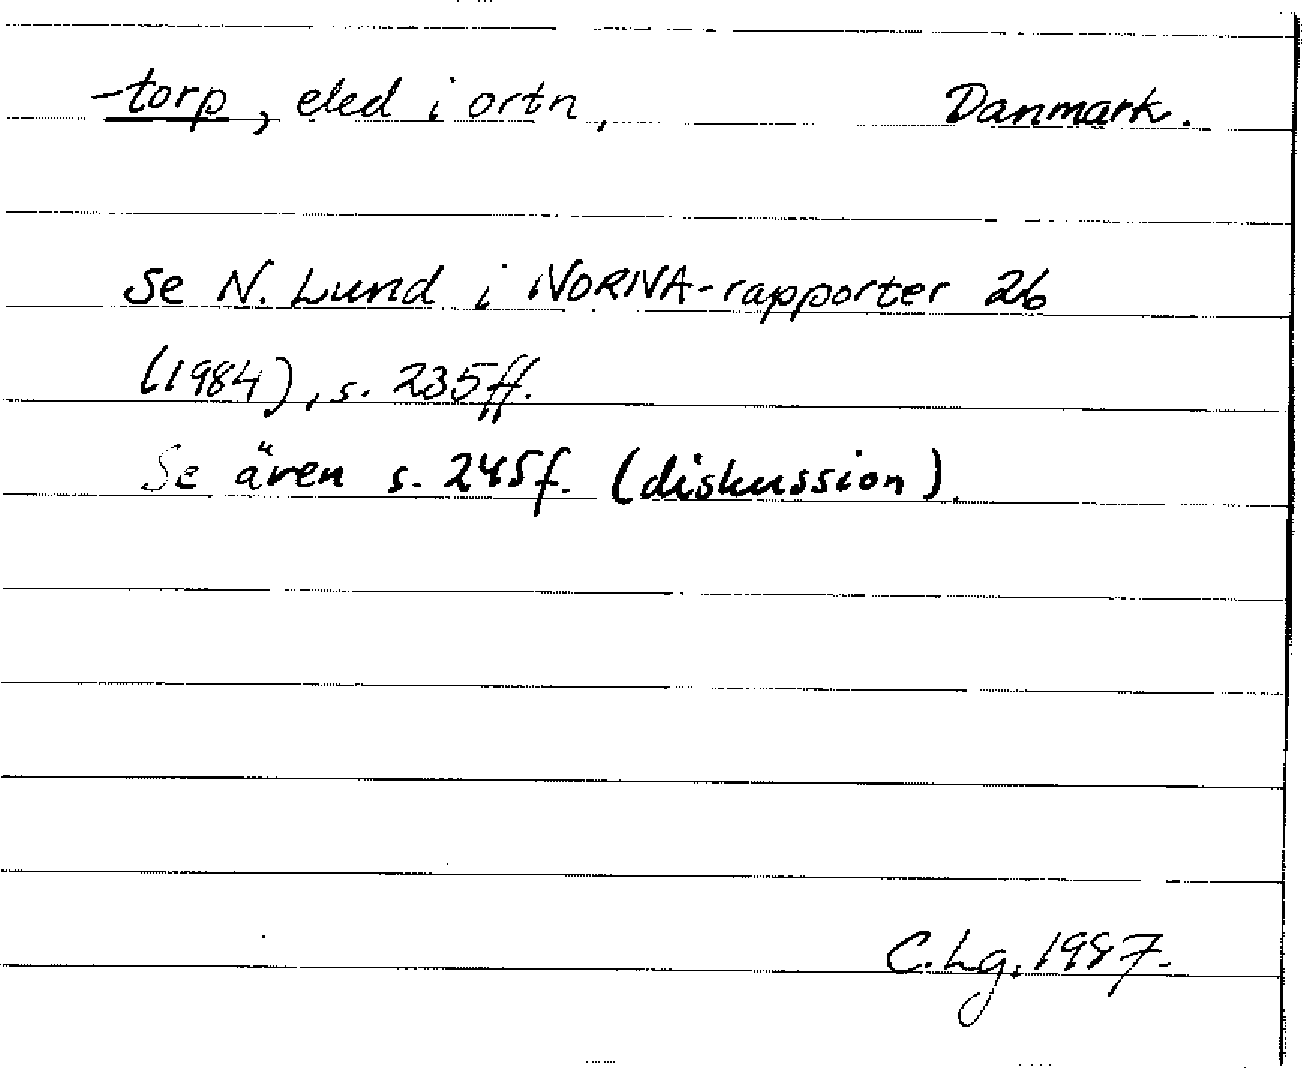 -torp, eled i ortn, Danmark.
Se N. Lund i NORNA-rapporter 26
(1984), s. 235ff.
Se även s. 245f. (diskussion).
C.Lg. 1987.